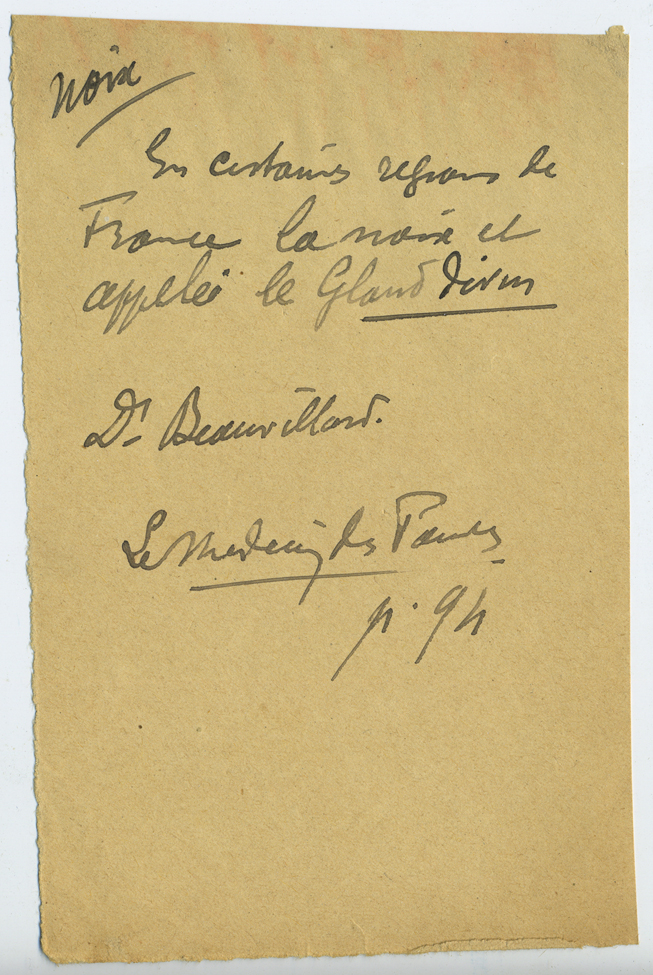 Noix
En certaines regions de
France la noix et
appelée le Gland divin
Dr Beauvillard.
Le Medecin des Pauvres
p. 94